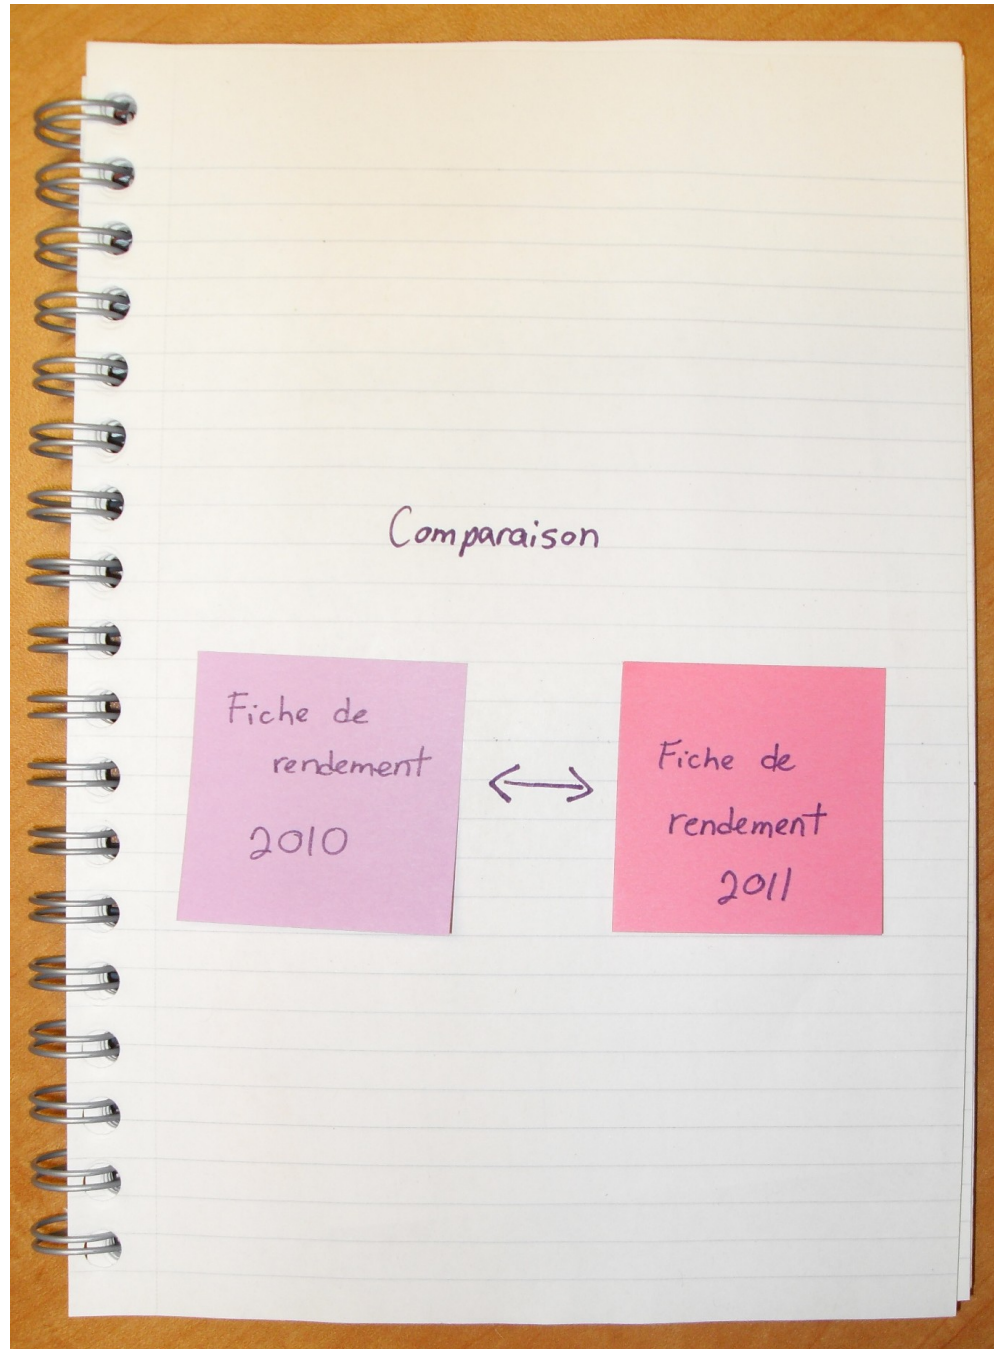 Comparaison
Fiche de
rendement
2010
Fiche de
rendement
2011